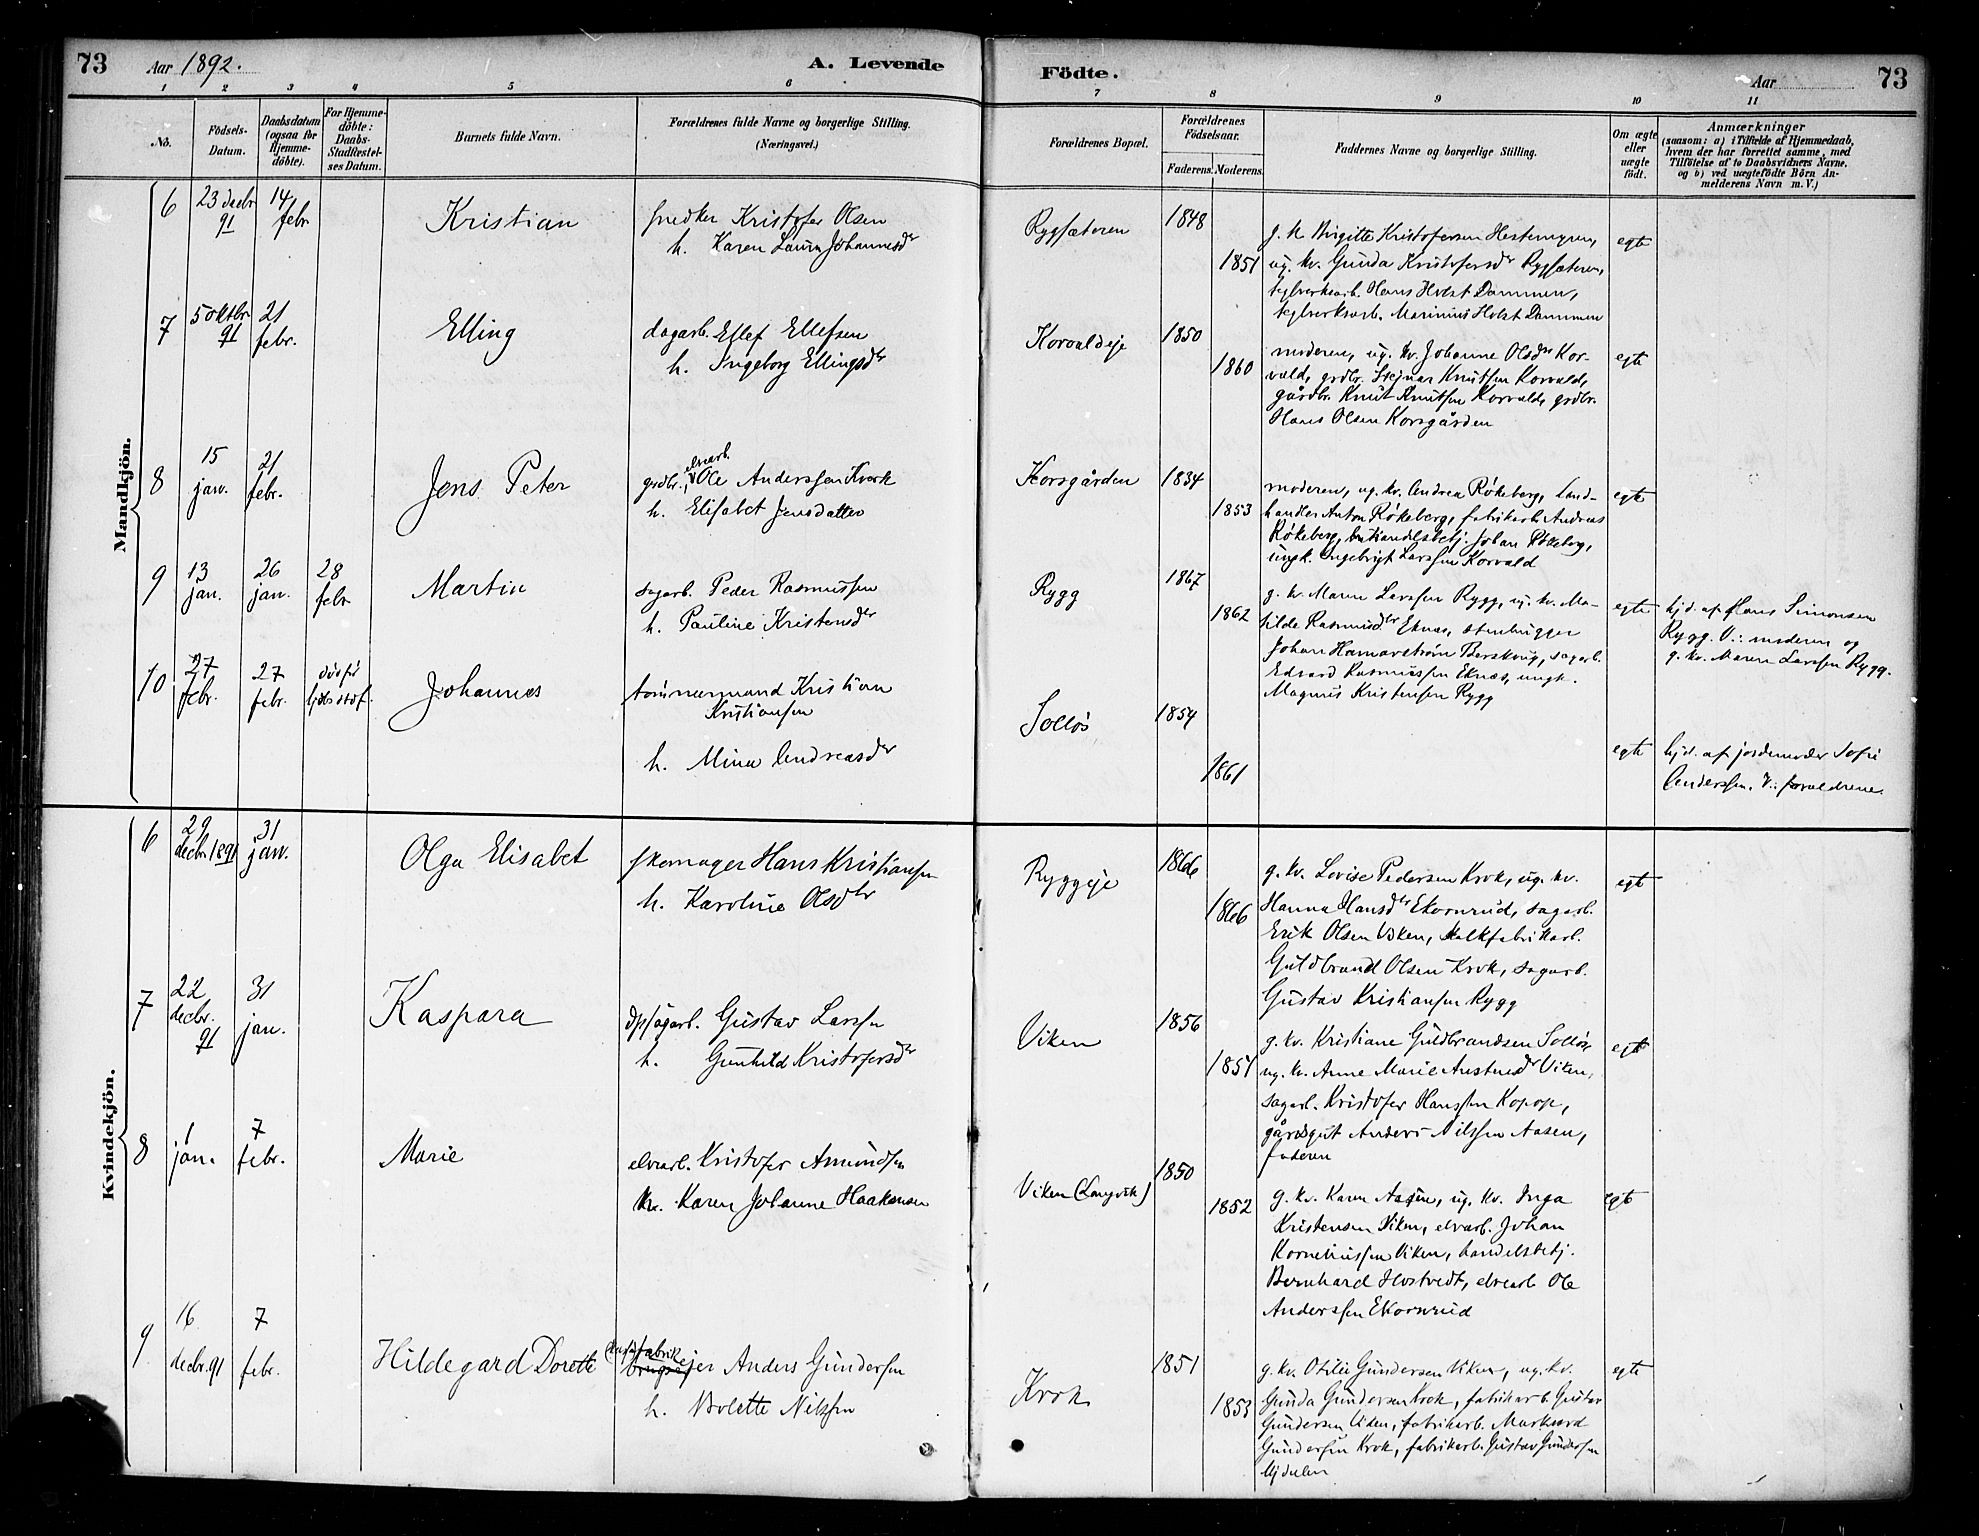 73
Aar 1892.
A. Levende
Födte.
Aar
73
1 2 3 4 5 6 7 8 9 10 11
No.
Födsels-Datum.
Daabsdatum (ogsaa for Hjemme-döbte).
For Hjemme-döbte: Daabs-Stadfæstel-ses Datum.
Barnets fulde Navn.
Forældrenes fulde Navne og borgerlige Stilling.
(Næringsvei.)
Forældrenes Bopæl.
Forældrenes Födselsaar.
Faderens. Moderens.
Faddernes Navne og borgerlige Stilling.
Om ægte eller uægte født.
Anmærkninger
(saasom: a) i Tilfælde af Hjemmedaab,
hvem der har forrettet samme, med
Tilföielse af to Daabsvidners Navne.
og b) ved uægtefödte Börn An-
melderens Navn m. V.)
Mandkjön.
6 23 decbr 91 14 febr. Kristian
snedker Kristofer Olsen
h. Karen Laura Johannesdr
Rygsæteren 1848 1851
g. k Birgitte Kristofersen Hestemyren,
ug. kv. Gunda Kristofersdr Rygsæteren,
teglverksarb. Hans Holst Dammen,
teglverksarb. Marinius Holst Dammen
egte
7 5 oktbr 91 21 febr. Elling
dagarb. Ellef Ellefsen
h. Ingeborg Ellingsdr
Korvaldeje 1850 1860
moderen, ug. kv. Johanne Olsdr Kor-
vald, grdbr. Steinar Knutsen Korvald,
gårdbr. Knut Knutsen Korvald, grdbr.
Hans Olsen Korsgården
egte
8 15 janr. 21 febr. Jens Peter
grdbr., elvearb. Ole Anderssen Kverk
h. Elisabet Jensdatter
Korsgården 1834 1853
moderen, ug. kv. Andrea Røkeberg, Land-
handler Anton Røkeberg, fabrikarb. Andreas
Røkeberg, handelsbetj. Johan Røkeberg,
ungk. Ingebrigt Larssen Korvald
egte
9 13 jan. 26 jan. 28 febr. Martin
sagarb. Peder Rasmussen
h. Pauline Kristensdr
Rygg 1867 1862
g. kv. Maren Larssen Rygg, ug. kv. Ma-
tilde Rasmusdr Eknes, stenhugger
Johan Hamarstrøm Berskvig, sagarb.
Edvard Rasmussen Eknes, ungk.
Magnus Kristensen Rygg
egte
hjd. af Hans Simonsen
Rygg. V.: moderen og
g. kv. Maren Larssen Rygg.
10 27 febr. 27 febr. død før
Johannes
tømmermand Kristian
Kristiansen
h. Mina Andreasdr
Solløs 1854 1861
egte
hjd. af jordemoder Sofie
Anderssen. V.: forældrene.
Kvindekjön.
6 29 decbr. 1891 31 jan. Olga Elisabet
skomager Hans Kristiansen
h. Karoline Olsdr
Ryggeje 1866 1866
g. kv. Lovise Pedersen Krok, ug. kv.
Hanna Hansdr Ekornrud, sagarb.
Erik Olsen Viken, kalkfabrikarb.
Guldbrand Olsen Krok, sagarb.
Gustav Kristiansen Rygg
egte
7 22 decbr. 91 31 jan. Kaspara
dpsagarb. Gustav Larssen
h. Gunhild Kristofersdr
Viken 1856 1851
g. kv. Kristiane Guldbrandsen Solløs
ug. kv. Anne Marie Anstensdr Viken,
sagarb. Kristofer Hanssen Kopop,
gårdsgut Anders Nilssen Aasen,
faderen
egte
8 1 jan. 7 febr. Marie
elvearb. Kristofer Amundsen
h. Karen Johanne Haakensen
Viken (Langvik) 1850 1852
g. kv. Karen Aasen, ug. kv. Inga
Kristensen Viken, elvearb. Johan
Korneliussen Viken, handelsbetj.
Bernhard Hostvedt, elvearb. Ole
Anderssen Ekornrud
egte
9 16 decbr. 91 7 febr. Hildegard Dorette
fabrikejer Anders Gundersen
h. Bolette Nilssen
Krok 1851 1853
g. kv. Otilie Gundersen Viken, ug. kv.
Gunda Gundersen Krok, fabrikarb. Gustav
Gundersen Viken, fabrikarb. Markvard
Gundersen Krok, fabrikarb. Gustav Gundersen
Mjdalen
egte